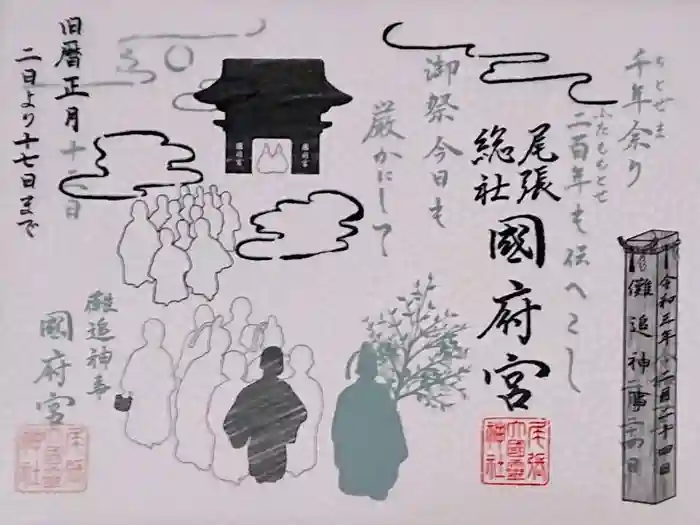 千年余り
ちとせあま
二百年も伝へこし
ふたももとせ
御祭今日も
厳かにして
尾張
総社
國府宮
尾張
大國霊
神社
令和三年
二月二十四日
儺追神事
國府宮
國府宮
旧暦正月十三日
二日より十七日まで
儺追神事
國府宮
尾張
大國霊
神社